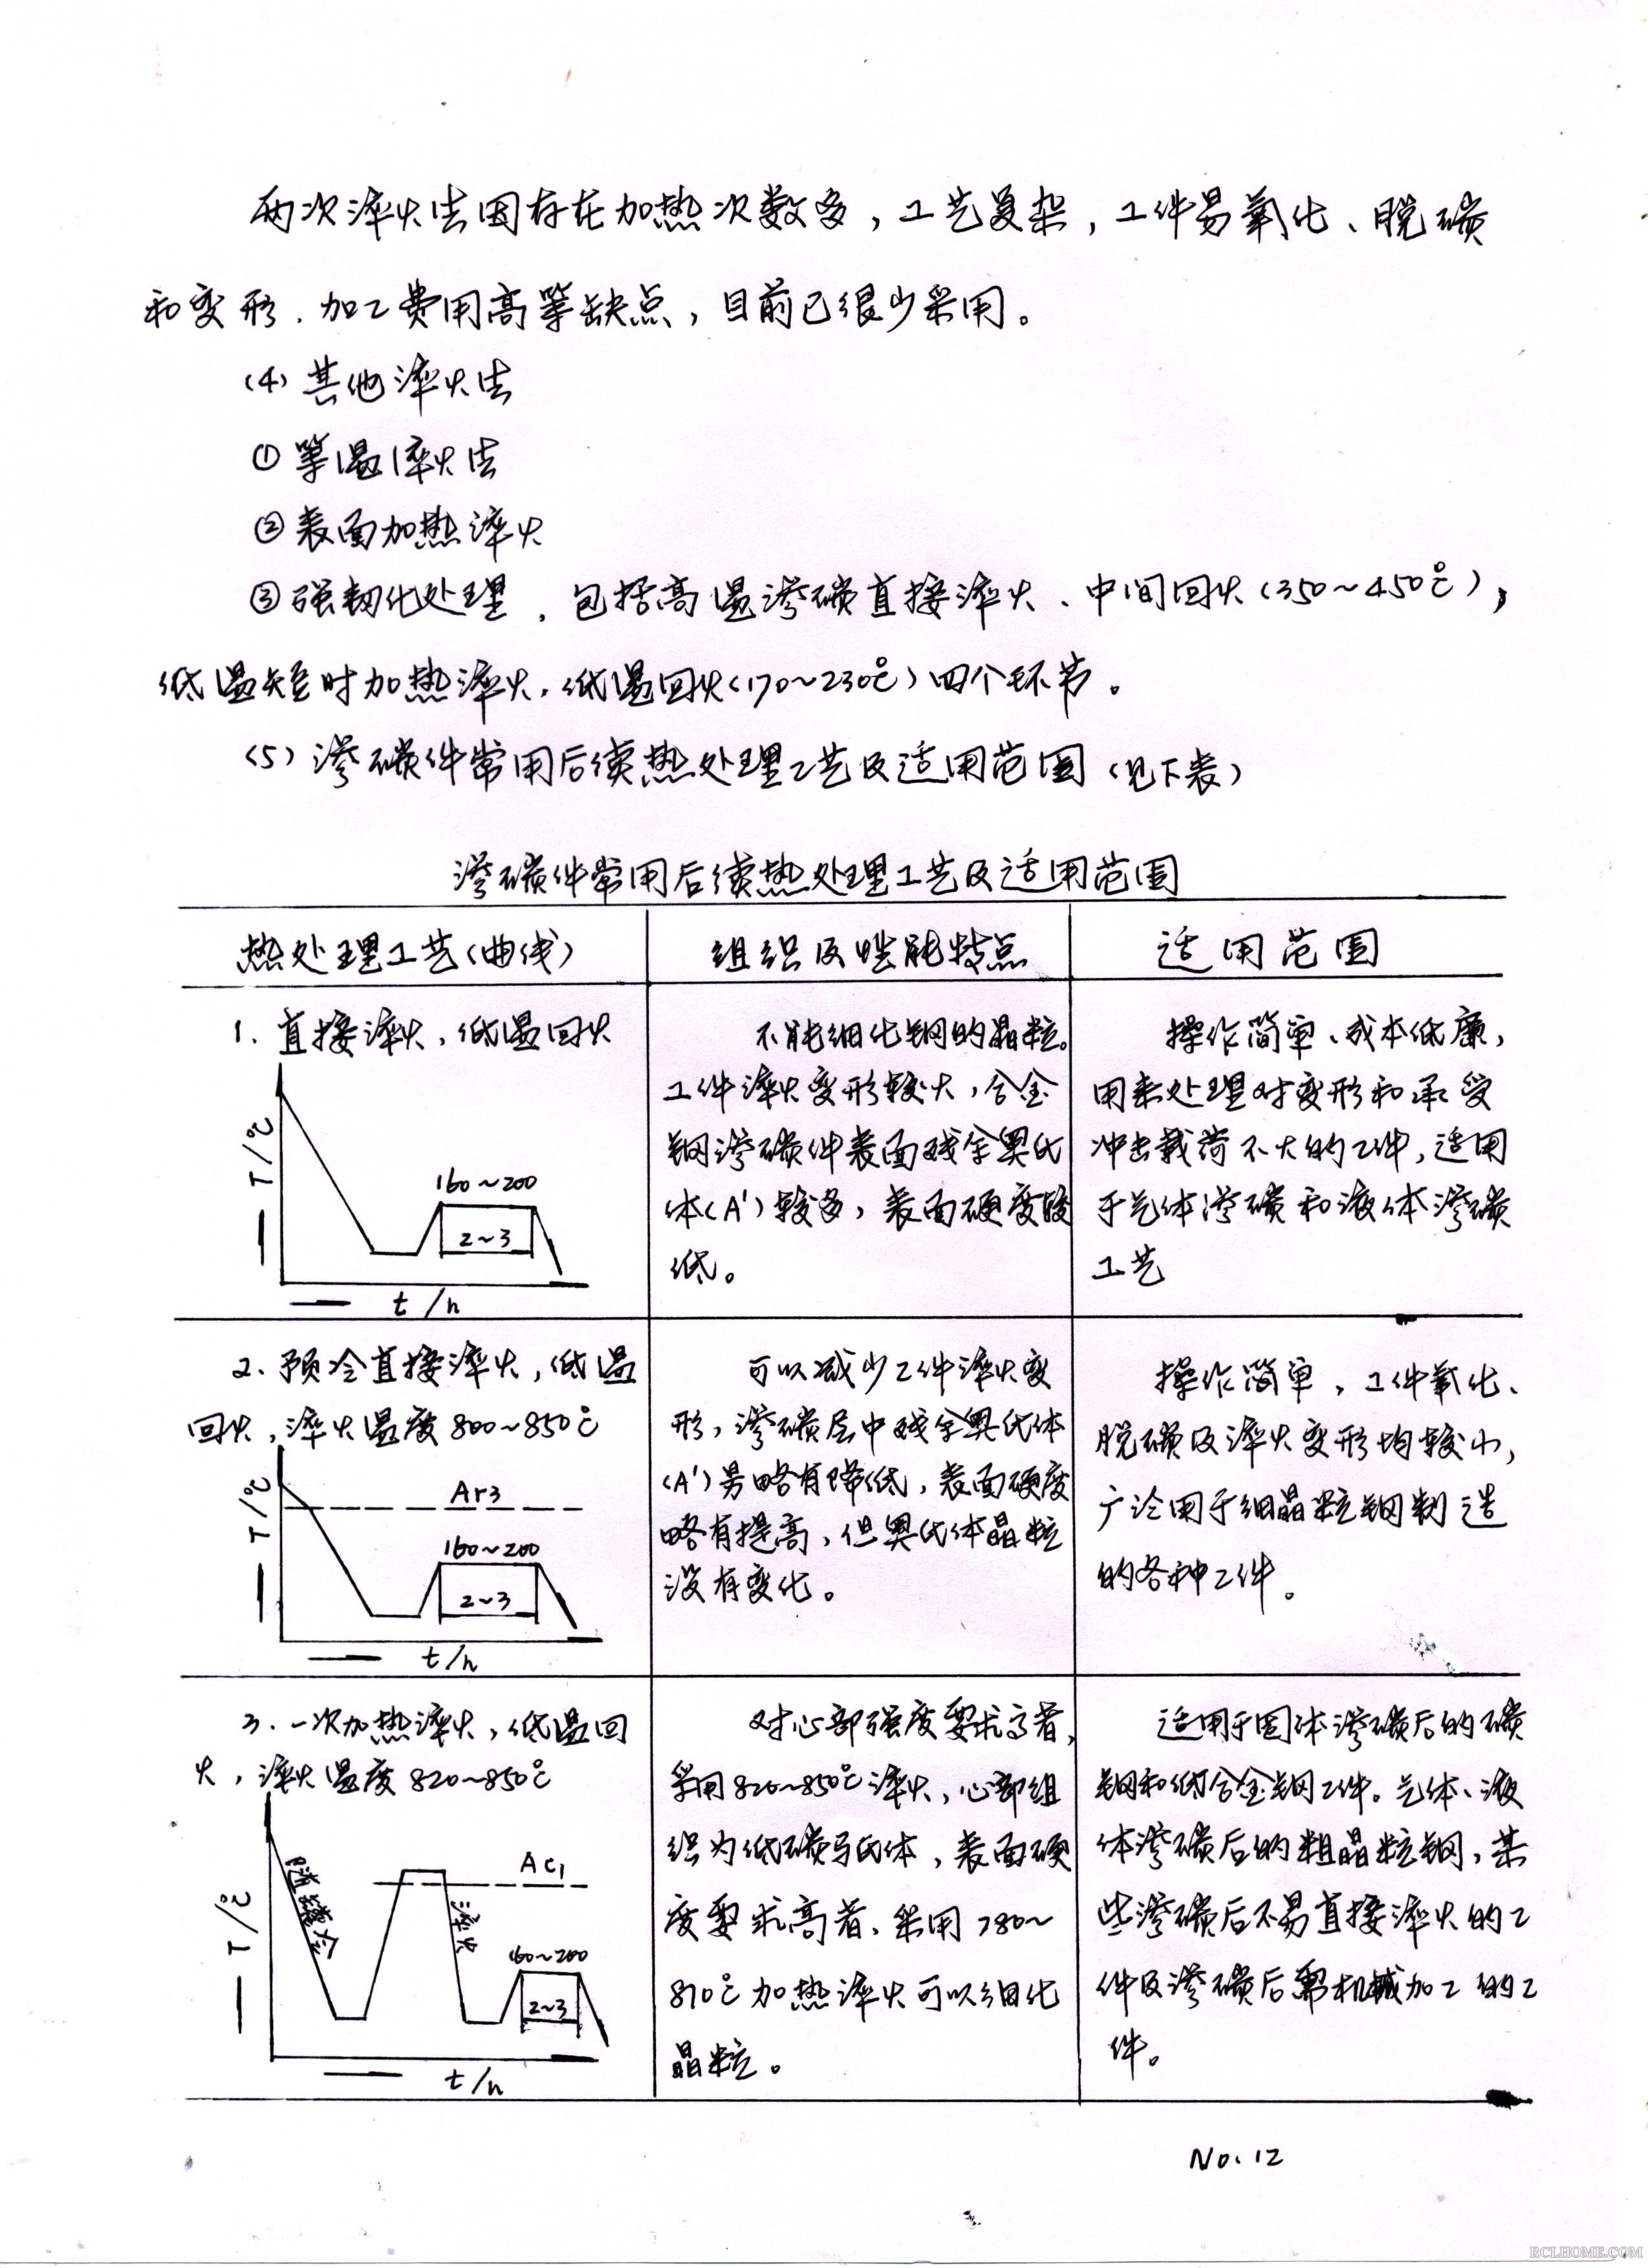 两次淬火法因存在加热次数多，工艺复杂，工件易氧化、脱碳
和变形．加工费用高等缺点，目前已很少采用。
(4) 其他淬火法
① 等温淬火法
② 表面加热淬火
③ 强韧化处理．包括高温渗碳直接淬火、中间回火(350～450℃)，
低温短时加热淬火．低温回火(170～230℃)四个环节。
(5) 渗碳件常用后续热处理工艺及适用范围(见下表)
渗碳件常用后续热处理工艺及适用范围
热处理工艺(曲线)
组织及性能特点
适用范围
1. 直接淬火，低温回火
T/℃
160～200
2～3
t/h
不能细化钢的晶粒。
工件淬火变形较大，合金
钢渗碳件表面残余奥氏
体(A')较多，表面硬度较
低。
操作简单、成本低廉，
用来处理对变形和承受
冲击载荷不大的工件，适用
于气体渗碳和液体渗碳
工艺
2. 预冷直接淬火，低温
回火，淬火温度800～850℃
T/℃
Ar3
160～200
2～3
t/h
可以减少工件淬火变
形，渗碳层中残余奥氏体
(A')另略有降低，表面硬度
略有提高，但奥氏体晶粒
没有变化。
操作简单，工件氧化、
脱碳及淬火变形均较小，
广泛用于细晶粒钢制造
的各种工件。
3. 一次加热淬火，低温回
火，淬火温度820～850℃
T/℃
随罐冷
Ac1
淬火
160～200
2～3
t/h
对心部强度要求高者，
采用820～850℃淬火，心部组
织为低碳马氏体，表面硬
度要求高者．采用780～
810℃加热淬火可以细化
晶粒。
适用于固体渗碳后的碳
钢和低合金钢工件。气体、液
体渗碳后的粗晶粒钢，某
些渗碳后不易直接淬火的工
件及渗碳后需机械加工的工
件。
No.12
RCLHOME.COM